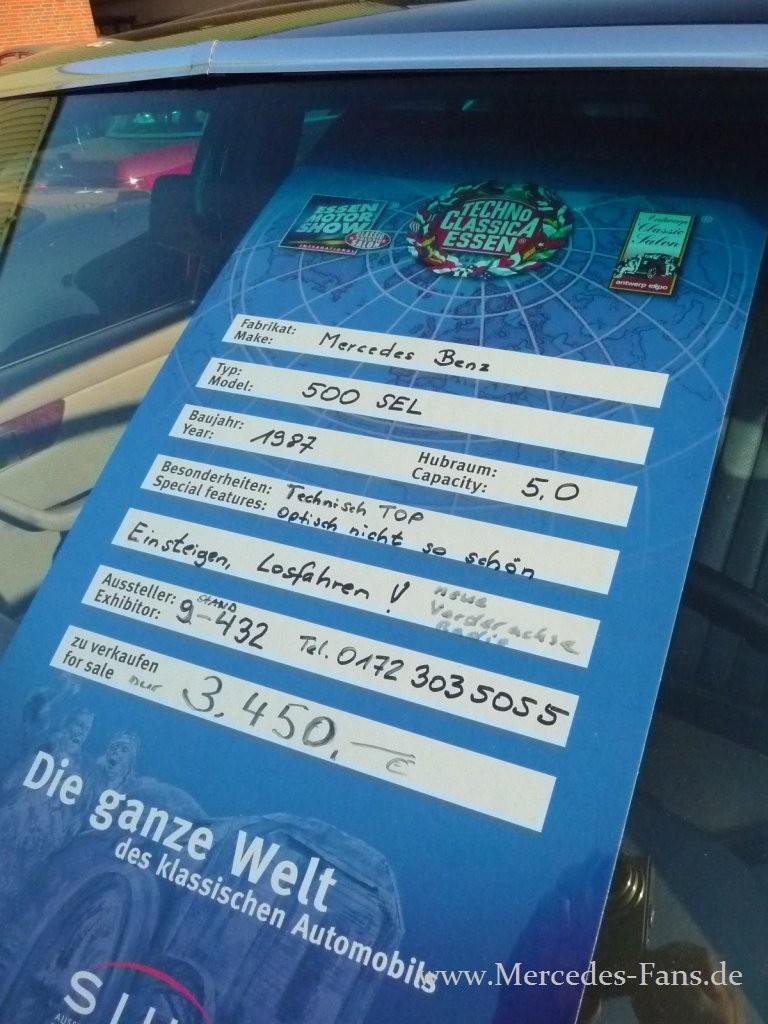 ESSEN
MOTOR
SHOW
INTERNATIONAL
TECHNO
CLASSICA
ESSEN
Antwerp
Classic
Salon
antwerp expo
Fabrikat:
Make: Mercedes Benz
Typ:
Model: 500 SEL
Baujahr:
Year: 1987
Hubraum:
Capacity: 5,0
Besonderheiten: Technisch TOP
Special features: Optisch nicht so schön
Einsteigen, Losfahren !
neue
Vorderachse
Radio
Aussteller: STAND
Exhibitor: 9-432 Tel. 0172 303 5055
zu verkaufen
for sale 3.450,— €
Die ganze Welt
des klassischen Automobils
www.Mercedes-Fans.de